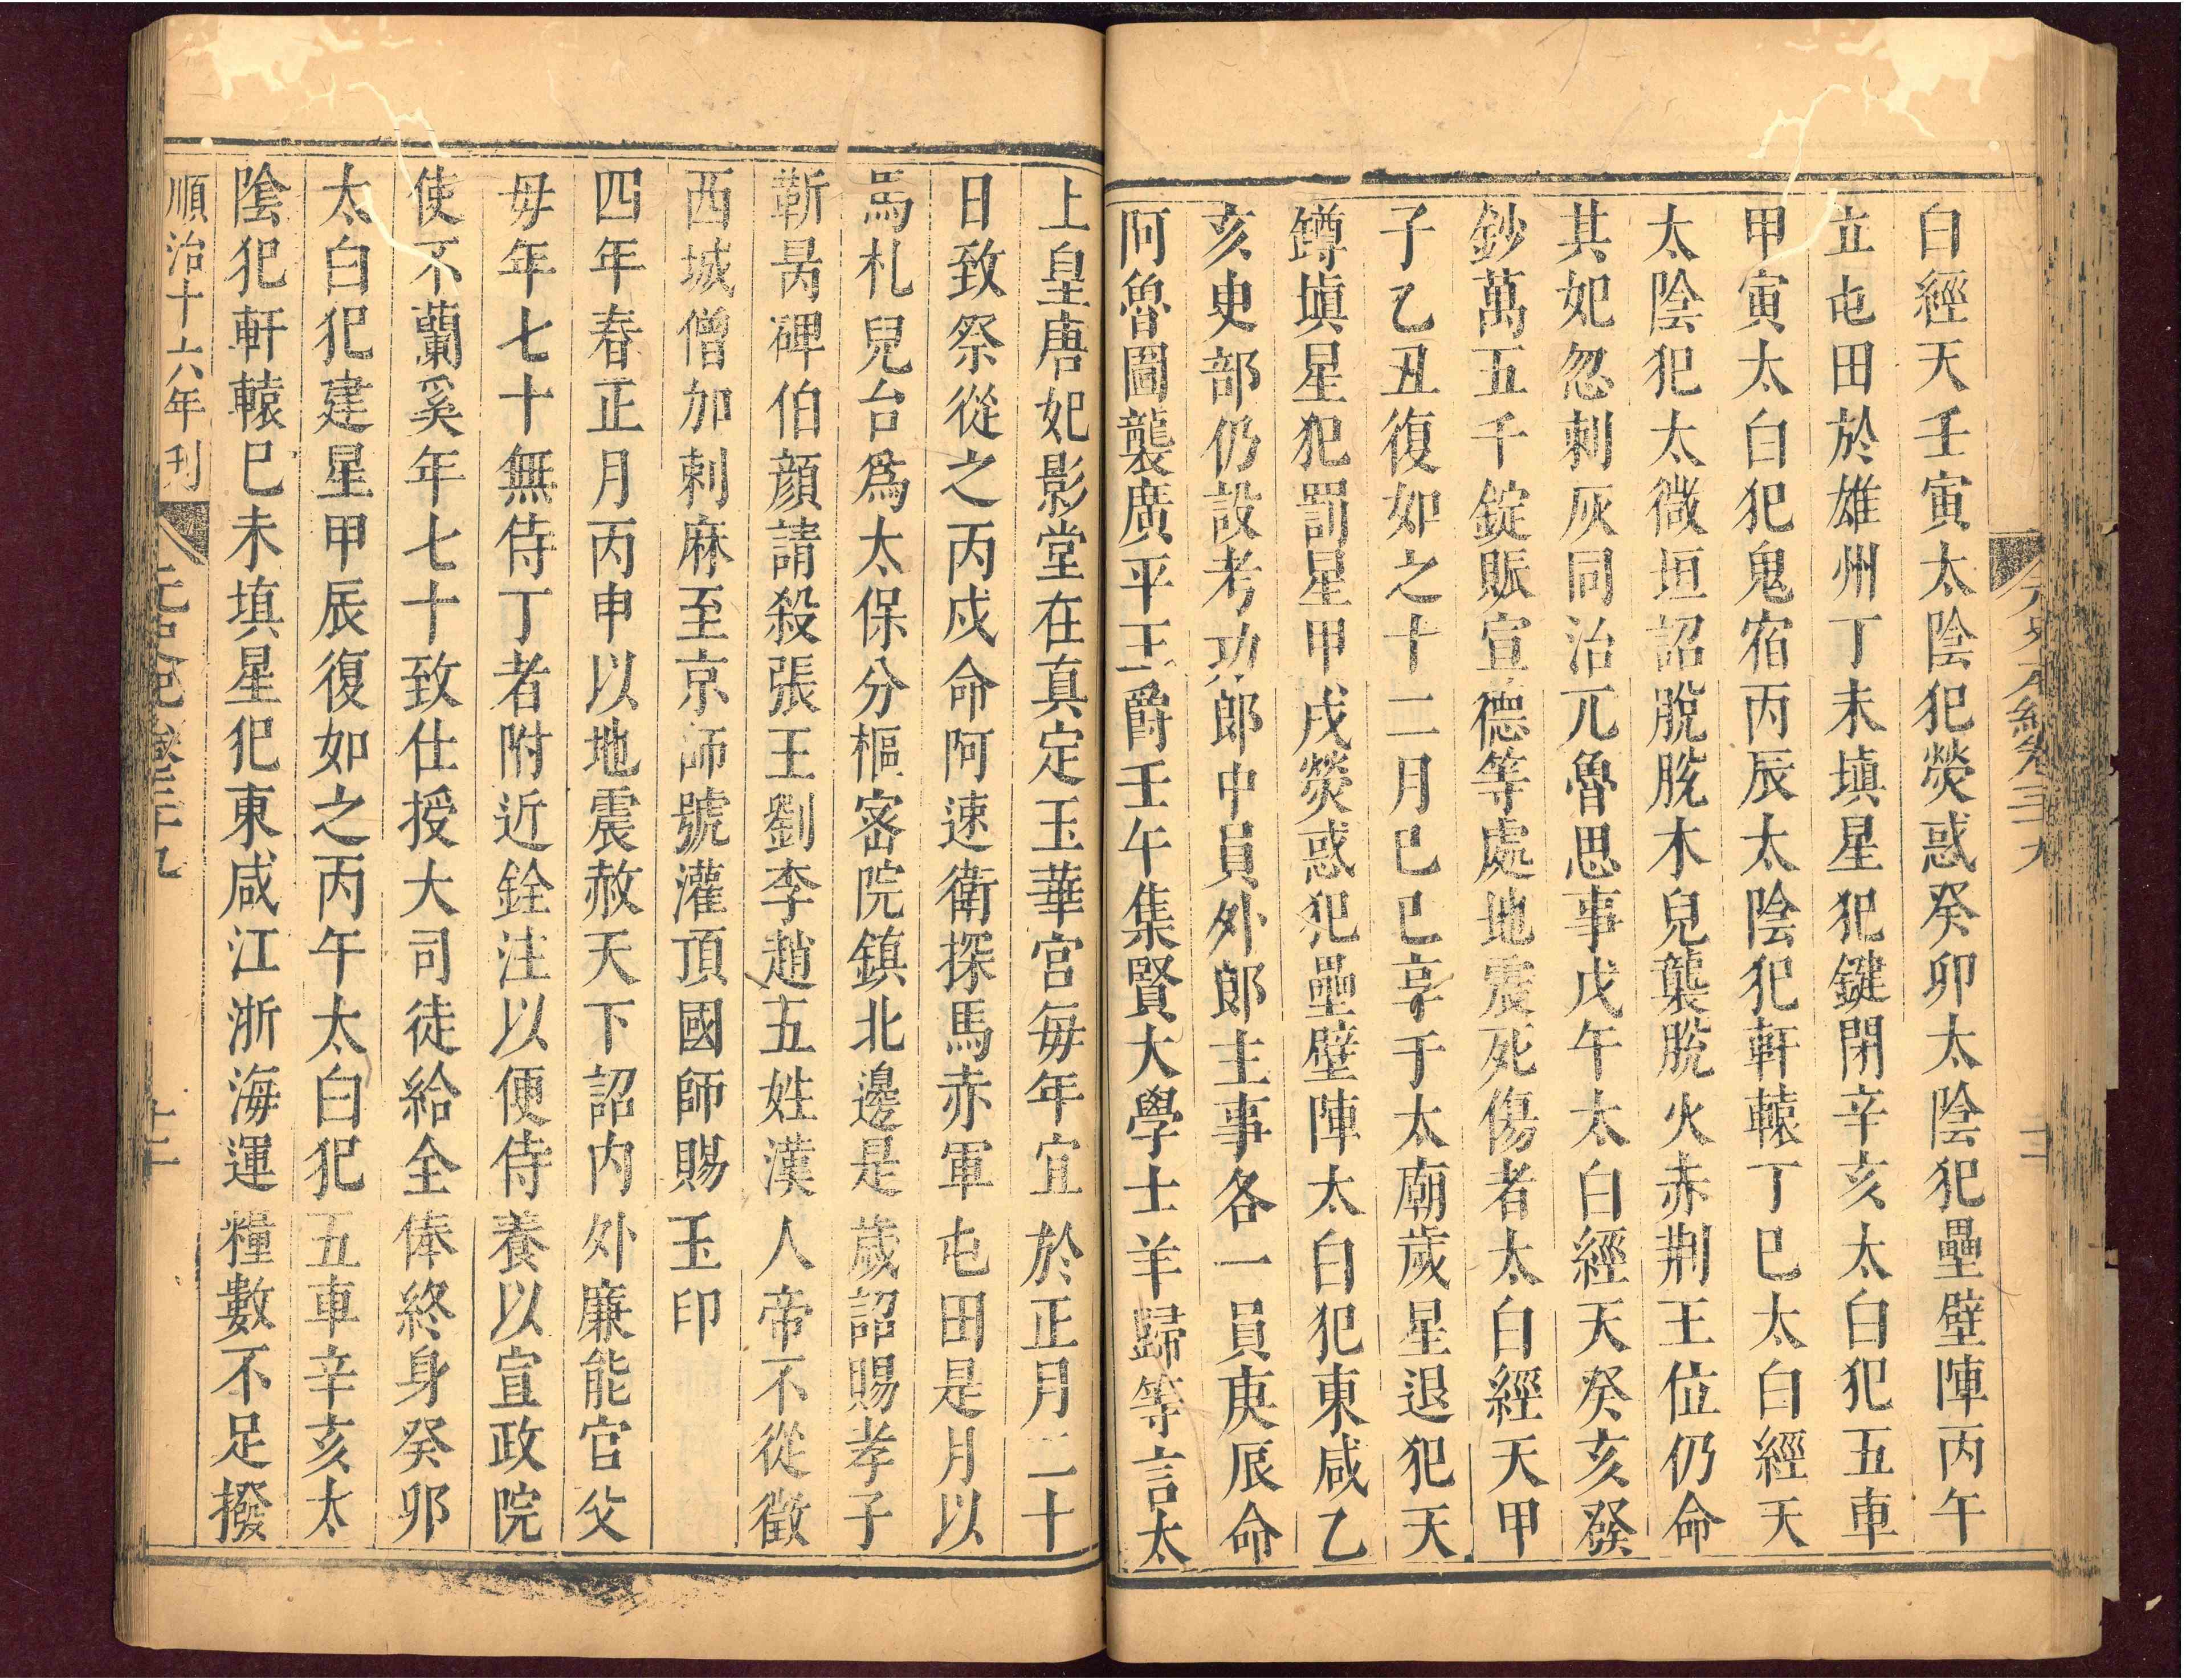 白經天壬寅太陰犯熒惑癸卯太陰犯壘壁陣丙午
立屯田於雄州丁未塡星犯鍵閉辛亥太白犯五車
甲寅太白犯鬼宿丙辰太陰犯軒轅丁巳太白經天
太陰犯太微垣詔脫脫木兒襲脫火赤荆王位仍命
其妃忽剌灰同治兀魯思事戊午太白經天癸亥發
鈔萬五千錠賑宣德等處地震死傷者太白經天甲
子乙丑復如之十二月己巳享于太廟歲星退犯天
罇塡星犯罰星甲戌熒惑犯壘壁陣太白犯東咸乙
亥吏部仍設考功郎中員外郎主事各一員庚辰命
阿魯圖襲廣平王爵壬午集賢大學士羊歸等言太
上皇唐妃影堂在真定玉華宮每年宜於正月二十
日致祭從之丙戌命阿速衛探馬赤軍屯田是月以
馬札兒台爲太保分樞密院鎮北邊是歲詔賜孝子
靳昺碑伯顔請殺張王劉李趙五姓漢人帝不從徵
西域僧加剌麻至京師號灌頂國師賜玉印
四年春正月丙申以地震赦天下詔内外廉能官父
毋年七十無侍丁者附近銓注以便侍養以宣政院
使不蘭奚年七十致仕授大司徒給全俸終身癸卯
太白犯建星甲辰復如之丙午太白犯五車辛亥太
陰犯軒轅巳未填星犯東咸江浙海運糧數不足撥
順治十六年刊